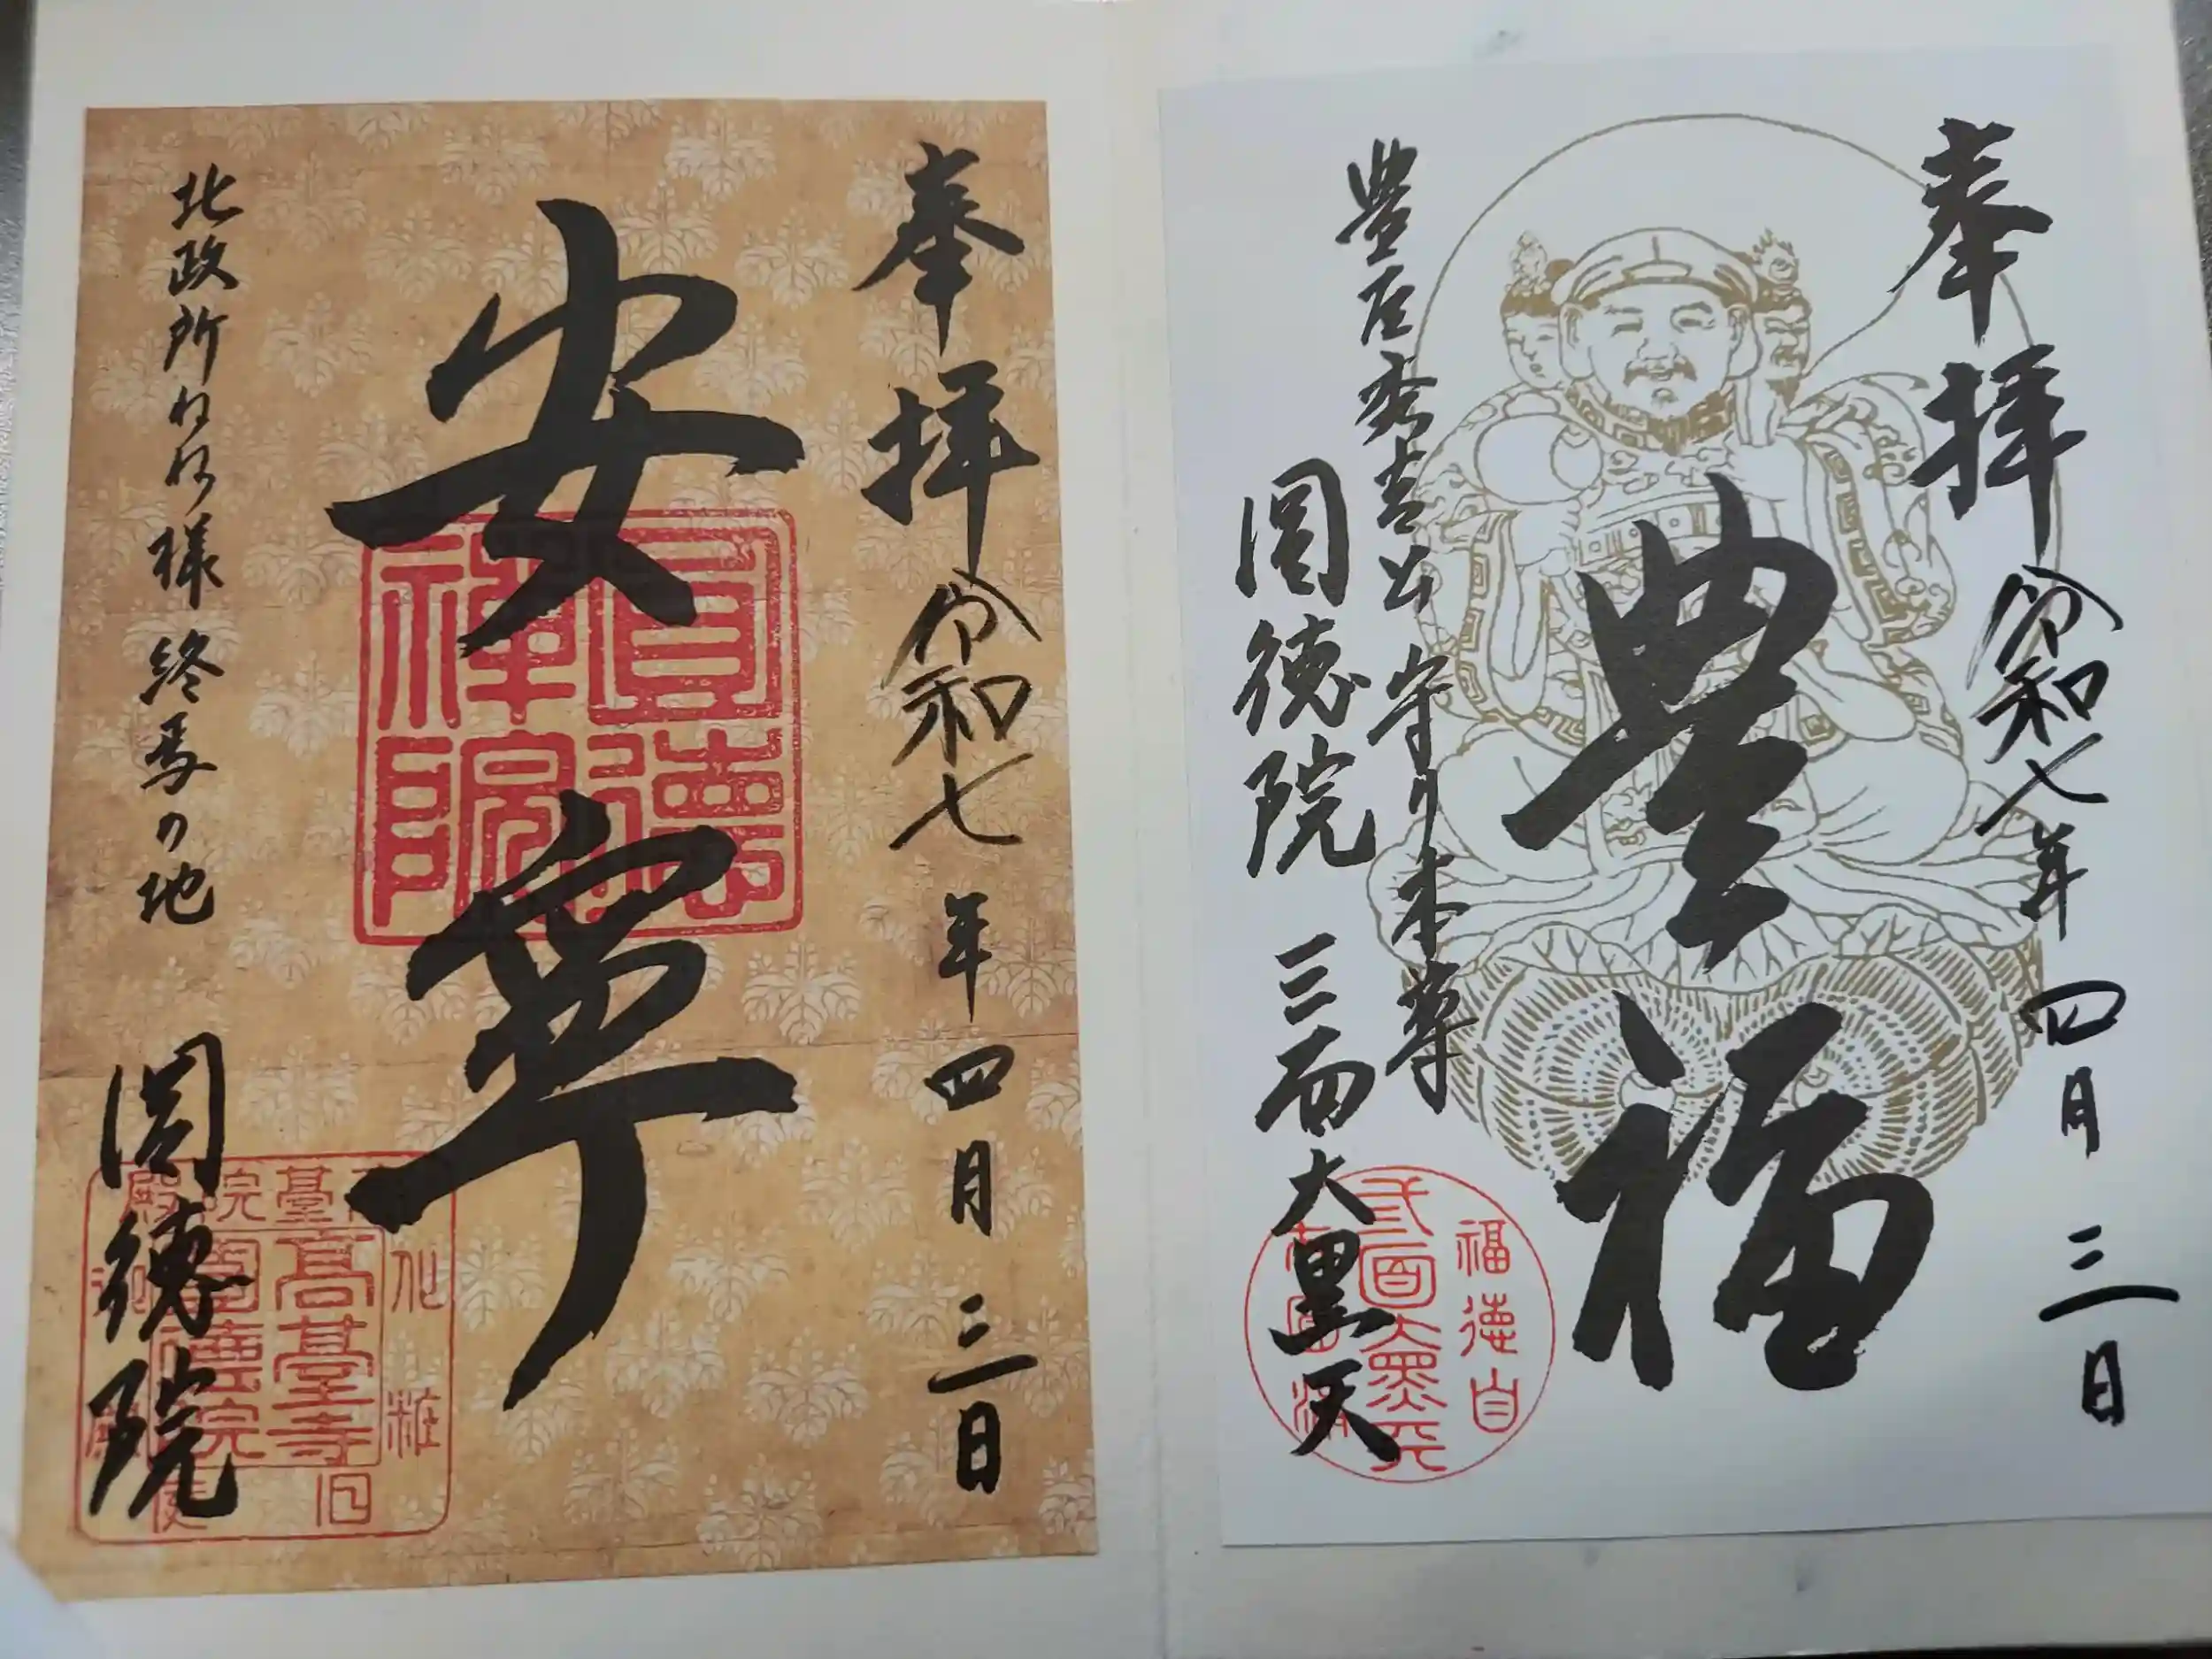 奉拝 令和七年四月三日
豊福
豊臣秀吉公 守り本尊
圓徳院 三面大黒天
福徳自
三面大黒天
奉拝 令和七年四月三日
安寧
圓徳禅院
北政所ねね様 終焉の地
圓徳院
高臺寺
圓徳院
化粧